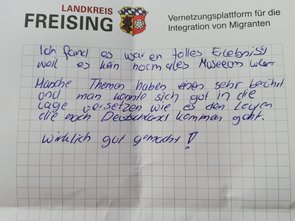 LANDKREIS
FREISING
Vernetzungsplattform für die
Integration von Migranten
Ich fand es war ein tolles Erlebniss
weil es kein normales Museum war.
Manche Themen haben einen sehr berührt
und man konnte sich gut in die
Lage versetzen wie es den Leuten
die nach Deutschland kommen geht.
Wirklich gut gemacht!